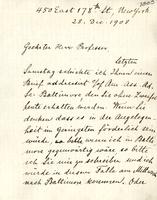 450 East 178th St., New York.
28. Dec. 1908
Geehrter Herr Professor
Letzten
Samstag schickte ich Ihnen einen
Brief addressiert Hof Am. Ass. Ad.
Sc. Baltimore, den Sie ohne Zweifel
heute erhalten werden. Wenn Sie
denken dass es in der Angelegen-
heit im Geringsten förderlich sein
würde, so bitte wenn ich in Balti-
more gegenwärtig wäre so bitte
ich Sie mir zu schreiben und ich
würde in diesem Falle am Mittwoch
nach Baltimore kommen. Oder